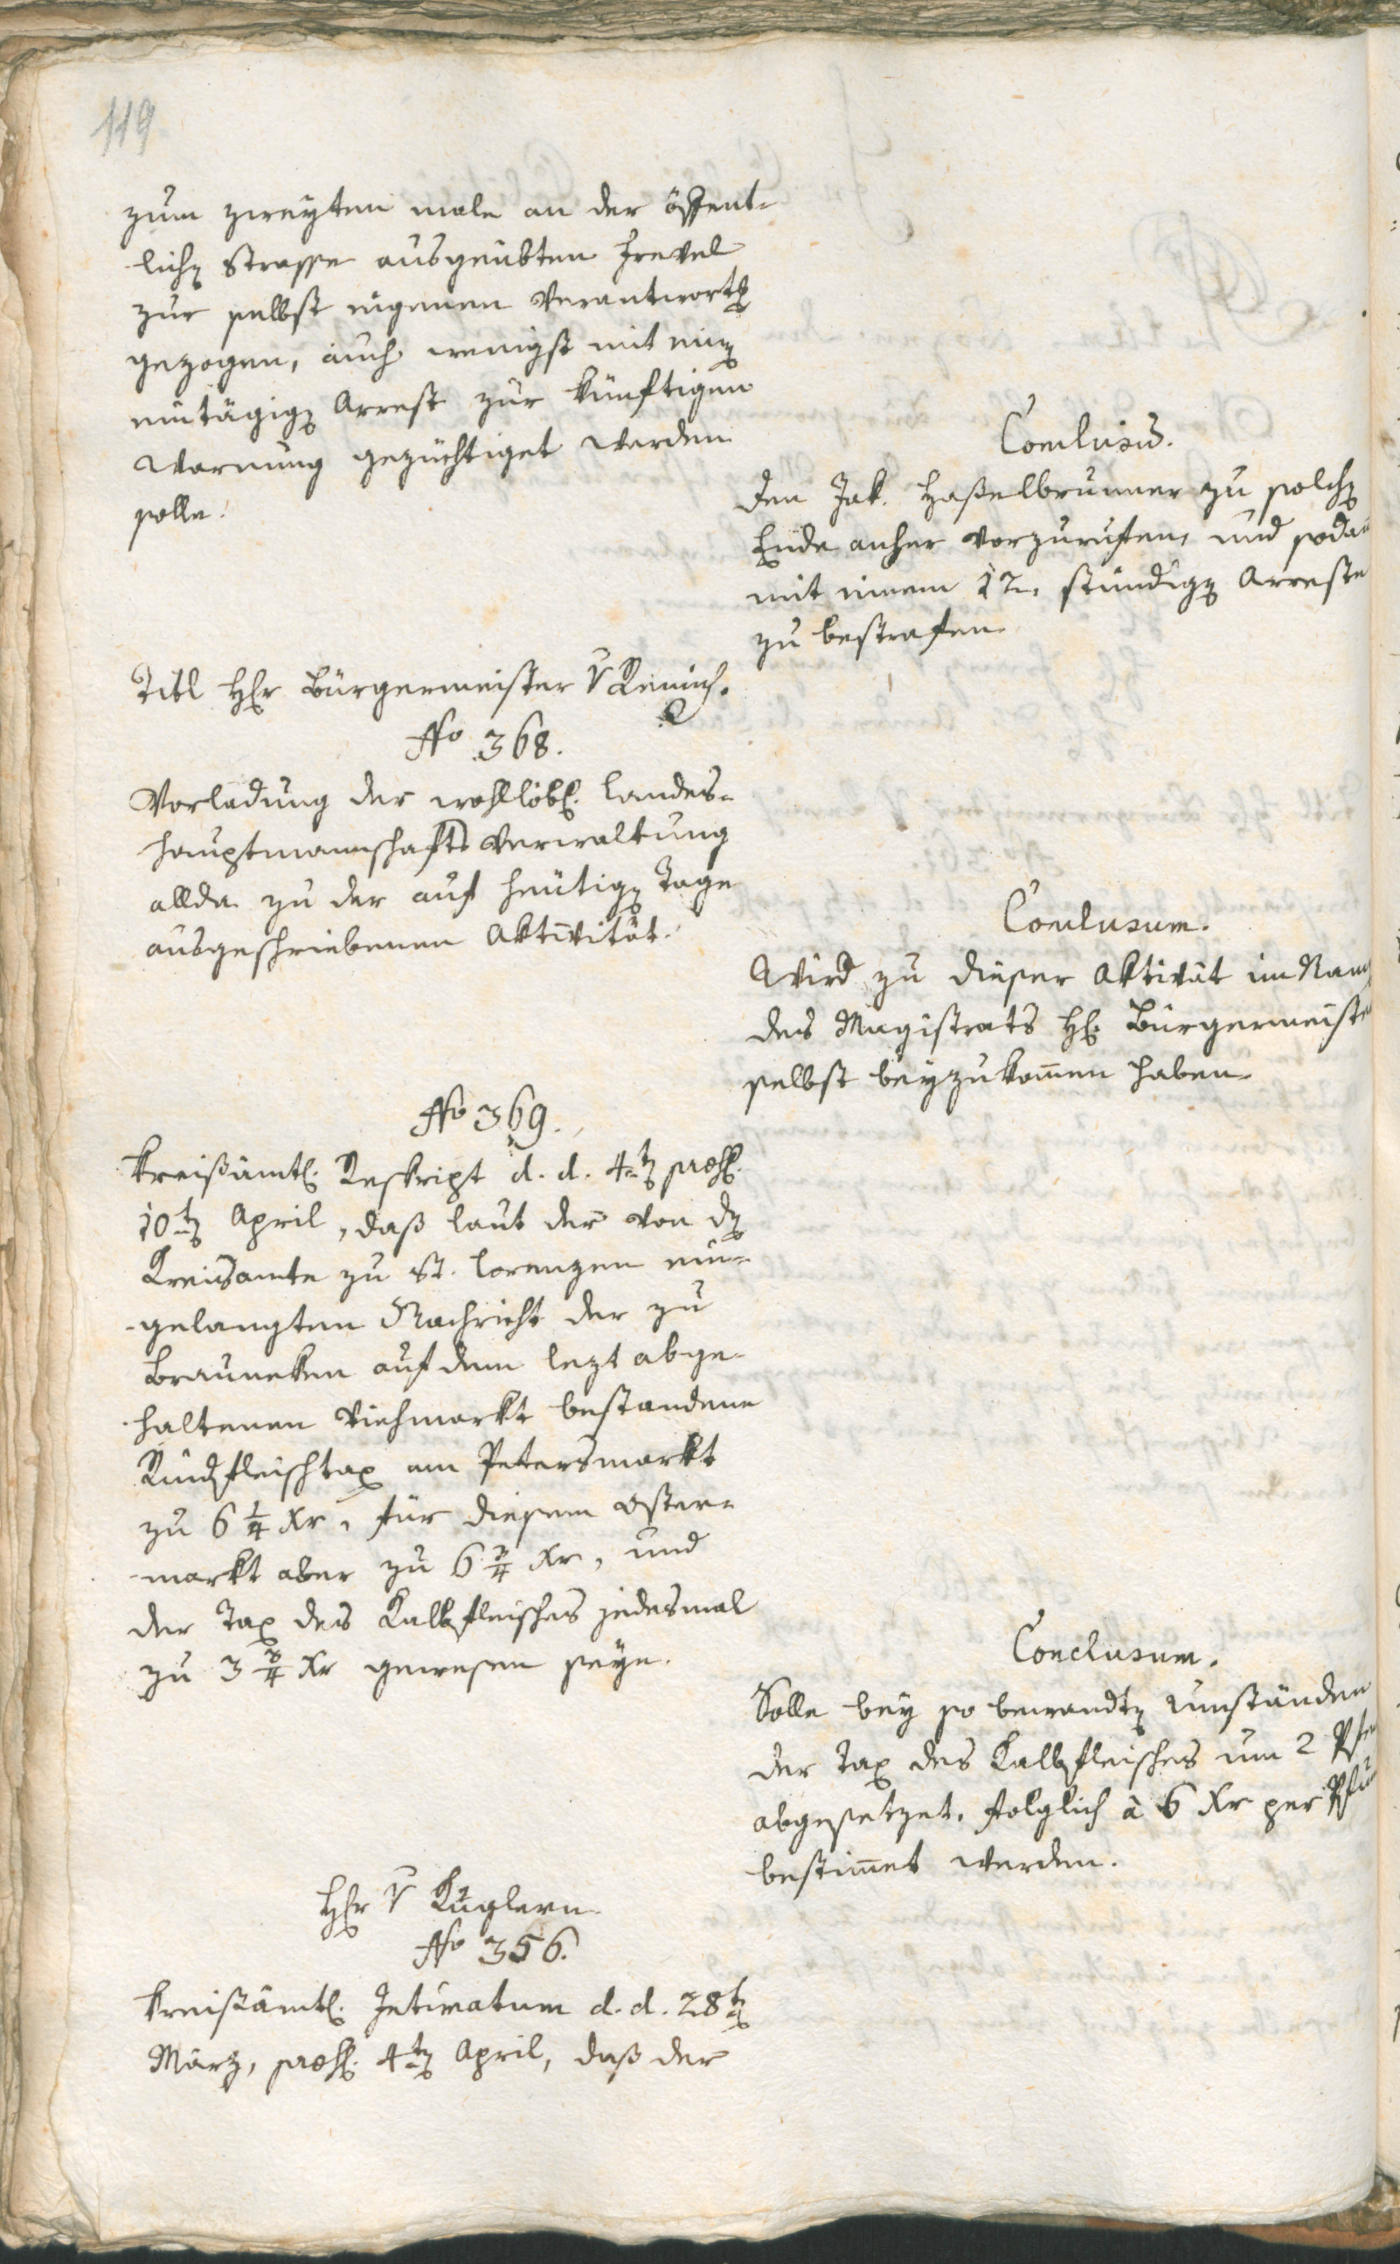 119
zum zweyten male an der öffent-
lichen Strasse ausgeübten Frevel
zur selbst eigenen Verantwortg
gezogen, auch wenigst mit einen
eintägigen Arrest zur künftigen
Warnung gezüchtiget werden
solle.
Conclusum.
Den Jak. Haßelbrunner zu solchen
Ende anher vorzurufen, und sodan
mit einem 12. stündigen Arreste
zu bestrafen.
Titl Hr Bürgermeister v
No 368.
Vorladung der wohllöbl. Landes-
hauptmannschafts Verwaltung
allda zu der auf heutigen Tage
ausgeschriebenen Aktivität.
Conclusum.
Wird zu dieser Aktivät im Namen
des Magistrats H. Bürgermeister
selbst beyzukomen haben.
No 369.
Kreißämtl. Reskript d. d. 4ten præs.
10ten April, daß laut der von den
Kreisamte zu St. Lorenzen ein-
gelangten Nachricht der zu
Brauneken auf dem lezt abge-
haltenen Viehmarkt bestandene
Rindfleischtax am Petersmarkt
zu 6 1/4 Xr, für diesem Oster-
markt aber zu 6 3/4 Xr, und
der Tax des Kalbfleisches jedesmal
zu 3 3/4 Xr gewesen seye.
Conclusum.
Solle bey so bewandten Umständen
der Tax des Kalbfleisches um 2
abgesetzet, folglich à 6 Xr per Pfund
bestimet werden.
Hr v Kuglern
No 356.
Kreißämtl. Intimatum d. d. 28ten
März, præs. 4ten April, daß der